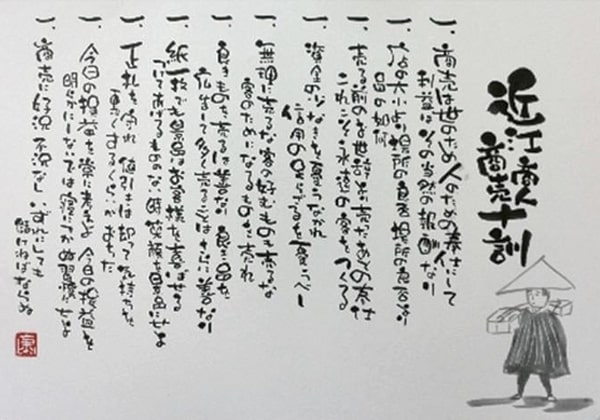 近江商人
商売十訓
一、商売は世のため人のための奉仕にして
利益はその当然の報酬なり
一、店の大小より場所の良否 場所の良否より
品の如何
一、売る前のお世辞より売ったあとの奉仕
これこそ永遠の客をつくる
一、資金の少なきを憂うなかれ
信用の足らざるを憂うべし
一、無理に売るな 客の好むものも売るな
客のためになるものを売れ
一、良きものを売るは善なり 良き品を
広告して多く売ることはさらに善なり
一、紙一枚でも景品はお客様を喜ばせる
つけてあげるもののない時笑顔を景品にせよ
一、正札を守れ 値引きは却って気持ちを
悪くするくらいがおちだ
一、今日の損益を常に考えよ 今日の損益を
明らかにしないでは寝につかぬ習慣にせよ
一、商売に好況 不況なし いずれにしても
儲けねばならぬ